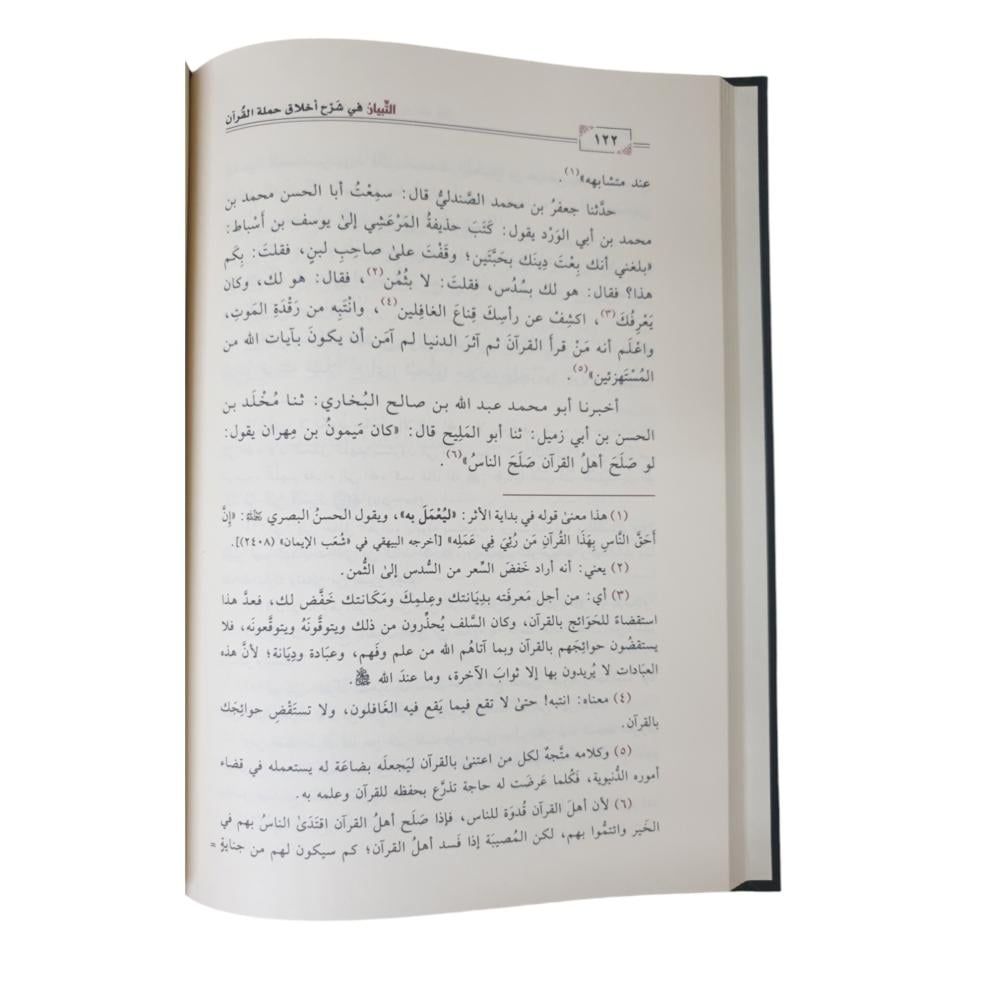 التِّبيان في شَرْح أخلاق حملة القُرآن
١٢٢
عند متشابهه»(١).
حدَّثنا جعفرُ بن محمد الصَّندليُّ قال: سمِعْتُ أبا الحسن محمد بن
محمد بن أبي الوَرْد يقول: كَتَبَ حذيفةُ المَرْعَشِي إلىٰ يوسف بن أَسْباط:
«بلغني أنك بِعْتَ دِينَك بحَبَّتَين؛ وقَفْتَ علىٰ صاحِبِ لبنٍ، فقلتَ: بِكَم
هذا؟ فقال: هو لك بسُدُس، فقلتَ: لا بثُمُن(٢)، فقال: هو لك، وكان
يَعْرِفُكَ(٣)، اكشِفْ عن رأسِكَ قِناعَ الغافِلين(٤)، وانْتَبِه من رَقْدَةِ المَوتِ،
واعْلَم أنه مَنْ قرأ القرآنَ ثم آثرَ الدنيا لم آمَن أن يكونَ بآيات الله من
المُسْتَهزئين»(٥).
أخبرنا أبو محمد عبد الله بن صالح البُخاري: ثنا مُخْلَد بن
الحسن بن أبي زميل: ثنا أبو المَلِيح قال: «كان مَيمونُ بن مِهران يقول:
لو صَلَحَ أهلُ القرآن صَلَحَ الناسُ»(٦).
(١) هذا معنىٰ قوله في بداية الأثر: «ليُعْمَلَ به»، ويقول الحسنُ البصري ﵀: «إِنَّ
أَحَقَّ النَّاسِ بِهَذَا القُرآنِ مَن رُئِيَ فِي عَمَلِه» [أخرجه البيهقي في «شُعَب الإيمان» (٢٤٠٨)].
(٢) يعني: أنه أراد خَفضَ السِّعر من السُّدس إلىٰ الثُّمن.
(٣) أي: من أجل مَعرفَته بدِيَانتك وعِلمِكَ ومَكَانتك خَفَّض لك، فعدَّ هذا
استقضاءً للحَوائج بالقرآن، وكان السَّلف يُحذِّرون من ذلك ويتوقَّونَهُ ويتوقَّعونَه، فلا
يستقضُون حوائِجَهم بالقرآن وبما آتاهُم الله من علم وفَهم، وعبَادة ودِيَانة؛ لأنَّ هذه
العبَادات لا يُريدون بها إلا ثوابَ الآخرة، وما عندَ الله ﷻ.
(٤) معناه: انتبه! حتىٰ لا تقع فيما يَقع فيه الغَافلون، ولا تستَقْضِ حوائِجَك
بالقرآن.
(٥) وكلامه متَّجهٌ لكل من اعتنىٰ بالقرآن ليَجعلَه بضاعَة له يستعمله في قضاء
أموره الدُّنيوية، فَكُلما عَرضَت له حاجة تذرَّع بحفظه للقرآن وعلمه به.
(٦) لأن أهلَ القرآن قُدوَة للناس، فإذا صَلَح أهلُ القرآن اقتَدَىٰ الناسُ بهم في
الخَير وائتمُّوا بهم، لكن المُصيبَة إذا فَسد أهلُ القرآن؛ كم سيكون لهم من جنايةٍ =